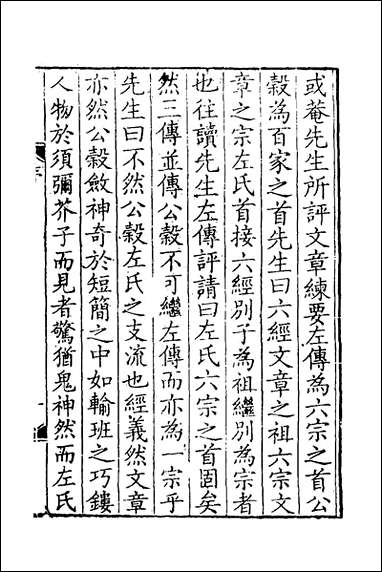 或菴先生所評文章練要左傳為六宗之首公
穀為百家之首先生曰六經文章之祖六宗文
章之宗左氏首接六經別子為祖繼別為宗者
也往讀先生左傳評請曰左氏六宗之首固矣
然三傳並傳公穀不可繼左傳而亦為一宗乎
先生曰不然公穀左氏之支流也經義然文章
亦然公穀斂神奇於短簡之中如輸班之巧鏤
人物於須彌芥子而見者驚猶鬼神然而左氏
序
一